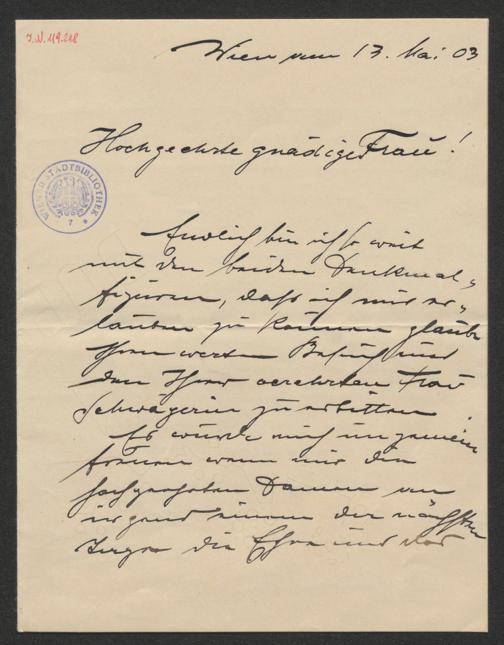 I.N. 119.218
Wien am 17. Mai 03
Hochgeehrte gnädige Frau!
WIENER STADTBIBLIOTHEK
Endlich bin ich so weit
mit den beiden Denkmal-
figuren, daß ich mir er-
lauben zu können glaube
Ihren werten Besuch und
den Ihrer verehrten Frau
Schwägerin zu erbitten.
Es würde mich ungemein
freuen wenn mir die
hochgeehrten Damen an
irgend einem der nächsten
Tage die Ehre und das